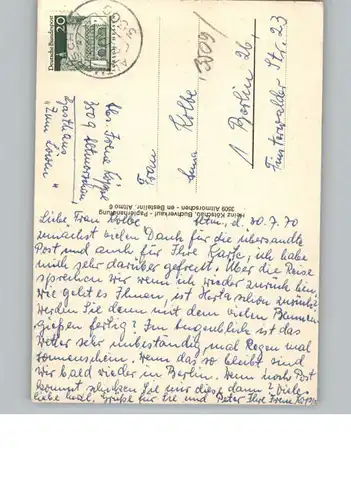 Deutsche Bundespost
20
Abs. Irene Köppe
3509 Altmorschen
Gasthaus
"Zum Löwen"
3509/
Frau
Anna Kolbe
1 Berlin 26,
Finsterwalder Str. 23
Heinz Kötschau, Buchverkauf - Papierhandlung
3509 Altmorschen - en Bestellnr. Altmo 6
Liebe Frau Kolbe Altm., d. 30.7.70
zunächst vielen Dank für die übersandte
Post und auch für Ihre Karte, ich habe
mich sehr darüber gefreut. Über die Reise
sprechen wir wenn ich wieder zurück bin.
Wie geht es Ihnen, ist Herta schon zurück?
Werden Sie denn mit dem vielen Blumen-
gießen fertig? Im Augenblick ist das
Wetter sehr unbeständig, mal Regen mal
Sonnenschein. Wenn das so bleibt sind
wir bald wieder in Berlin. Wenn noch Post
kommt schicken Sie mir diese dann? Viele
liebe Grüße für Sie und Peter Ihre Irene